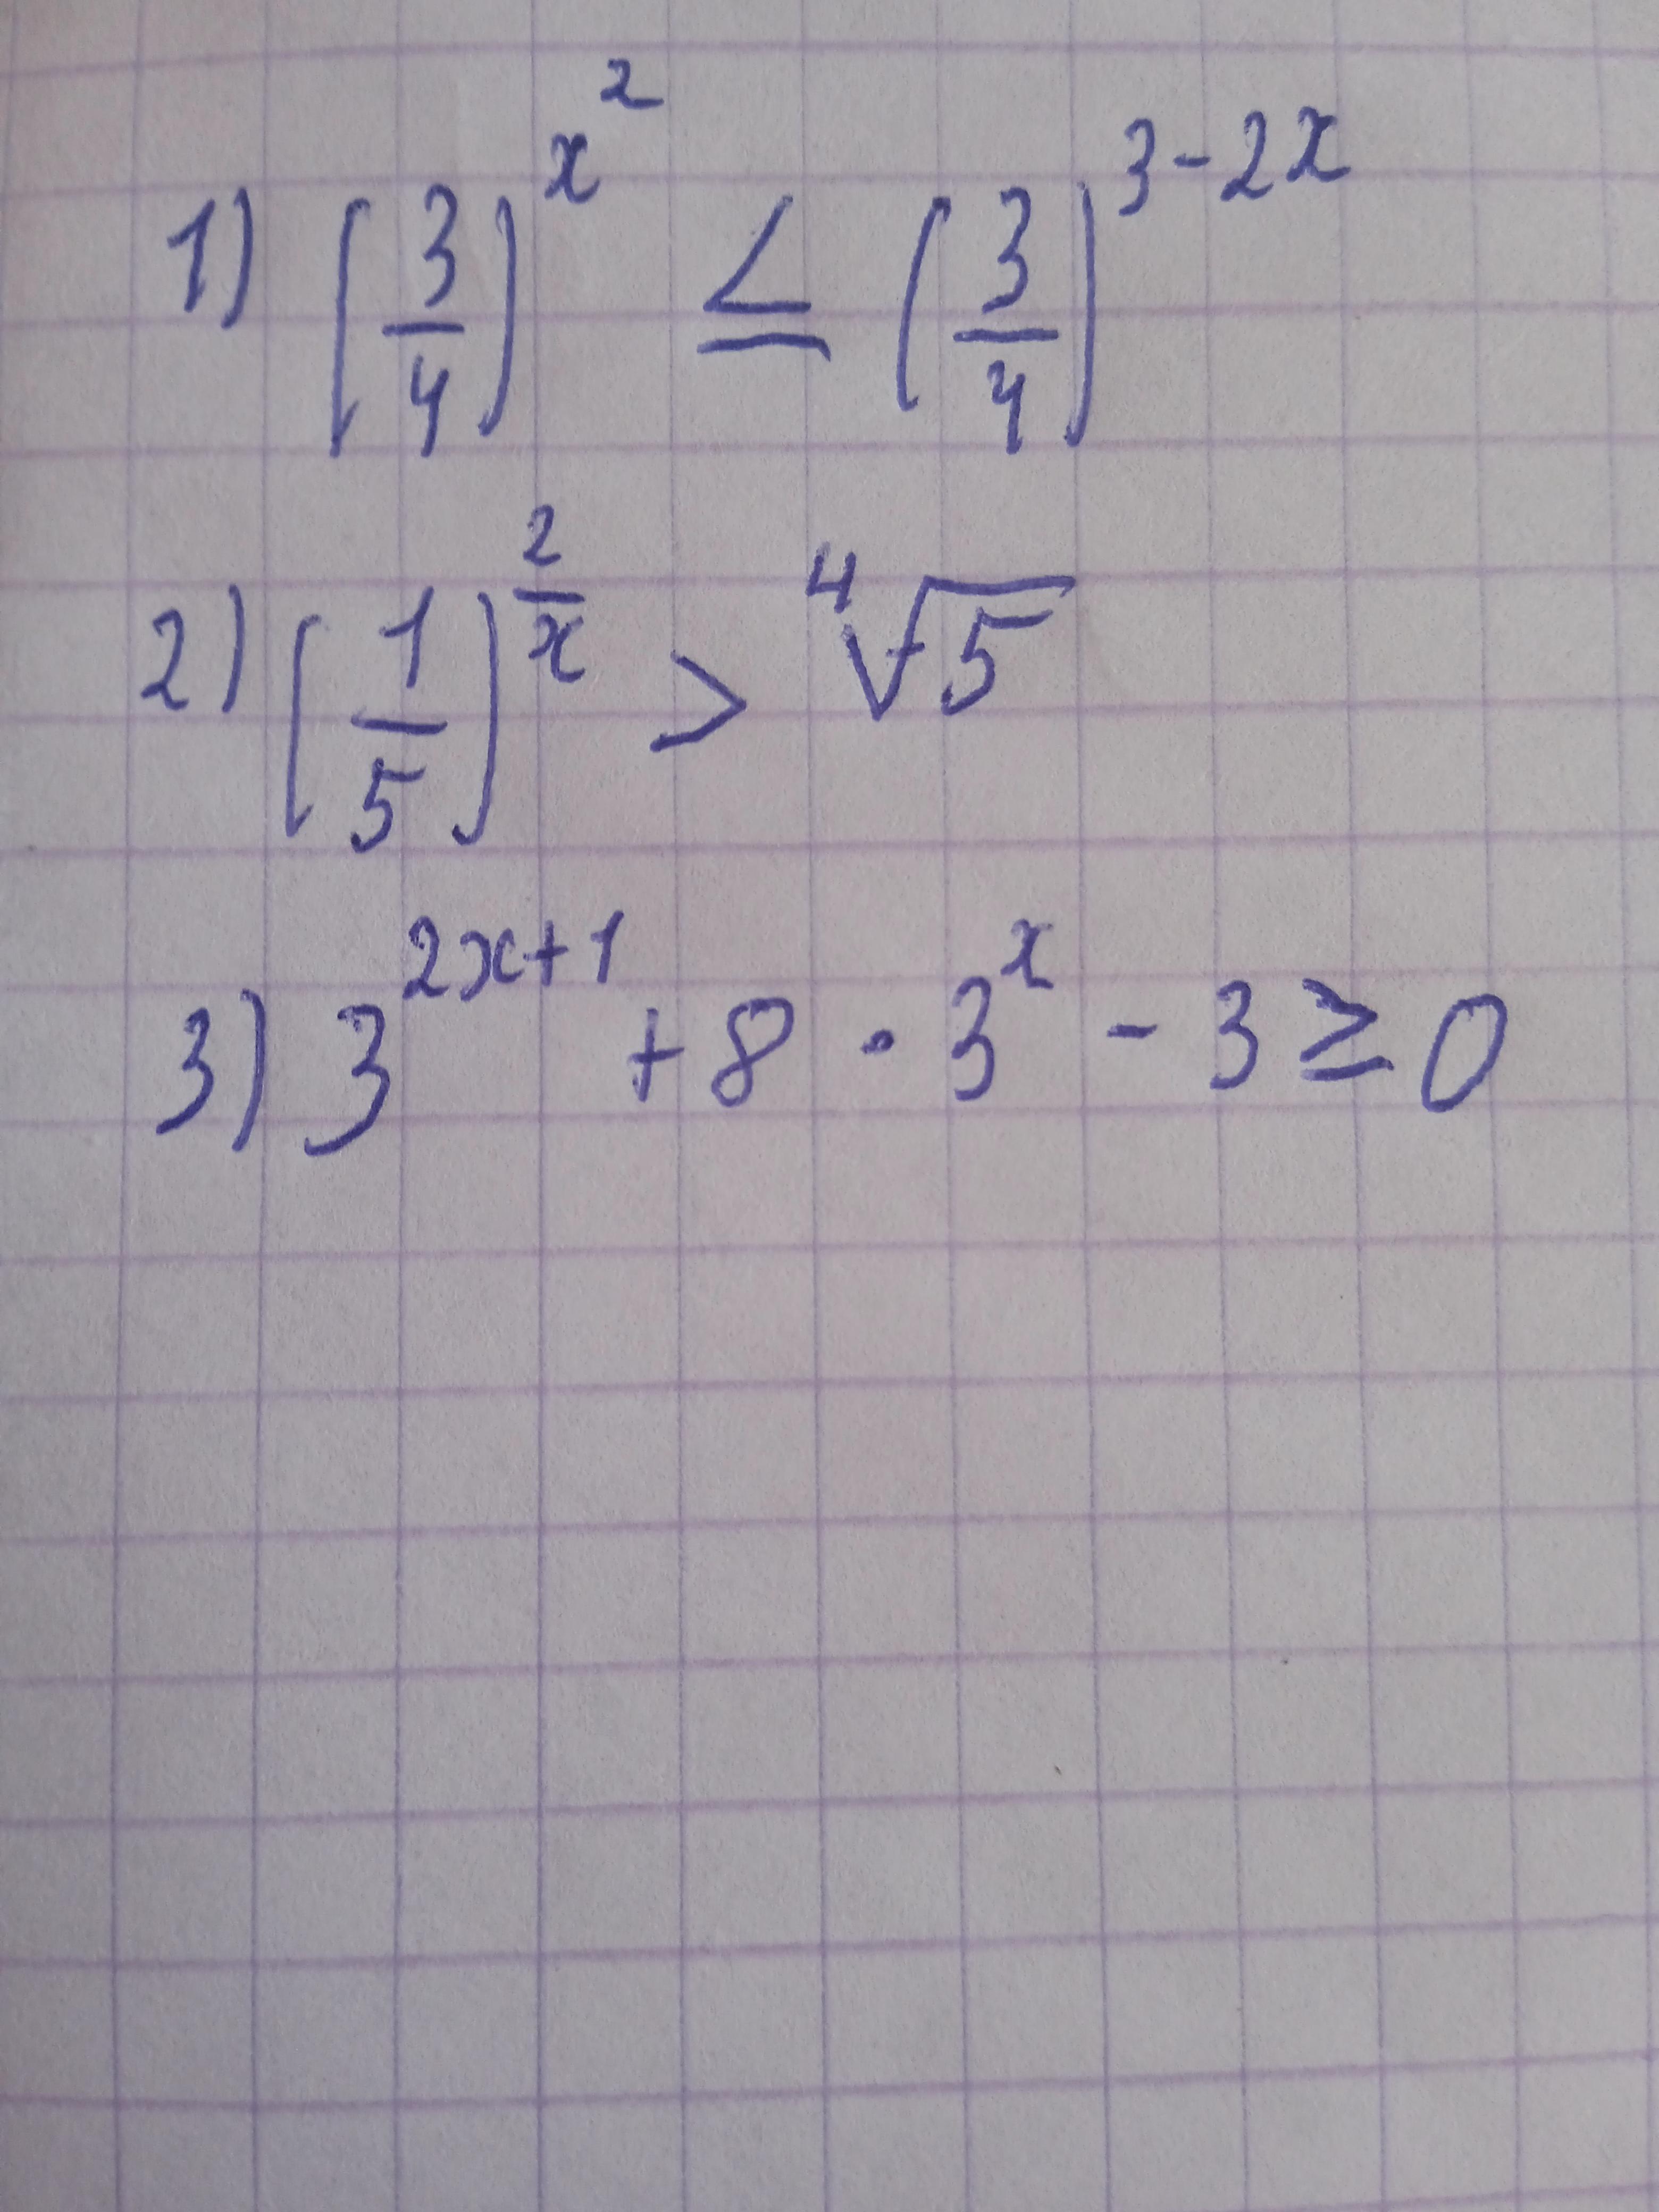 1) (3/4)^x^2 ≤ (3/4)^3-2x
2) (1/5)^2/x > ⁴√5
3) 3^2x+1 + 8 · 3^x - 3 ≥ 0